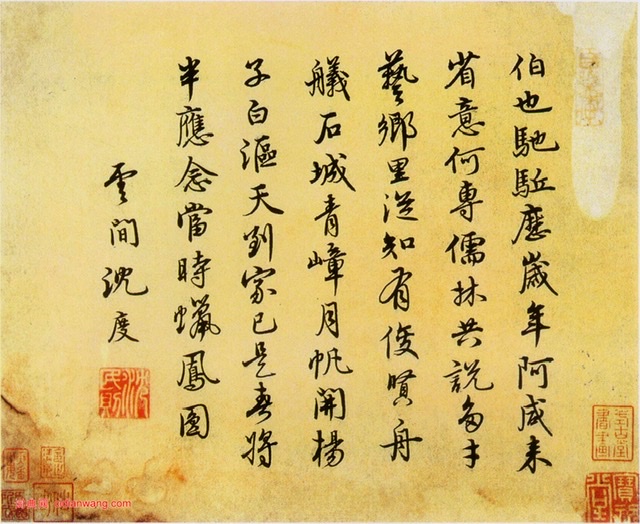 伯也馳駈歷歲年阿咸来
省意何專儒林共說多才
藝鄉里從知有俊賢舟
艤石城青嶂月帆開楊
子白漚天到家已是春将
半應念當時蠟鳳圓
雲間沈度
沈民則